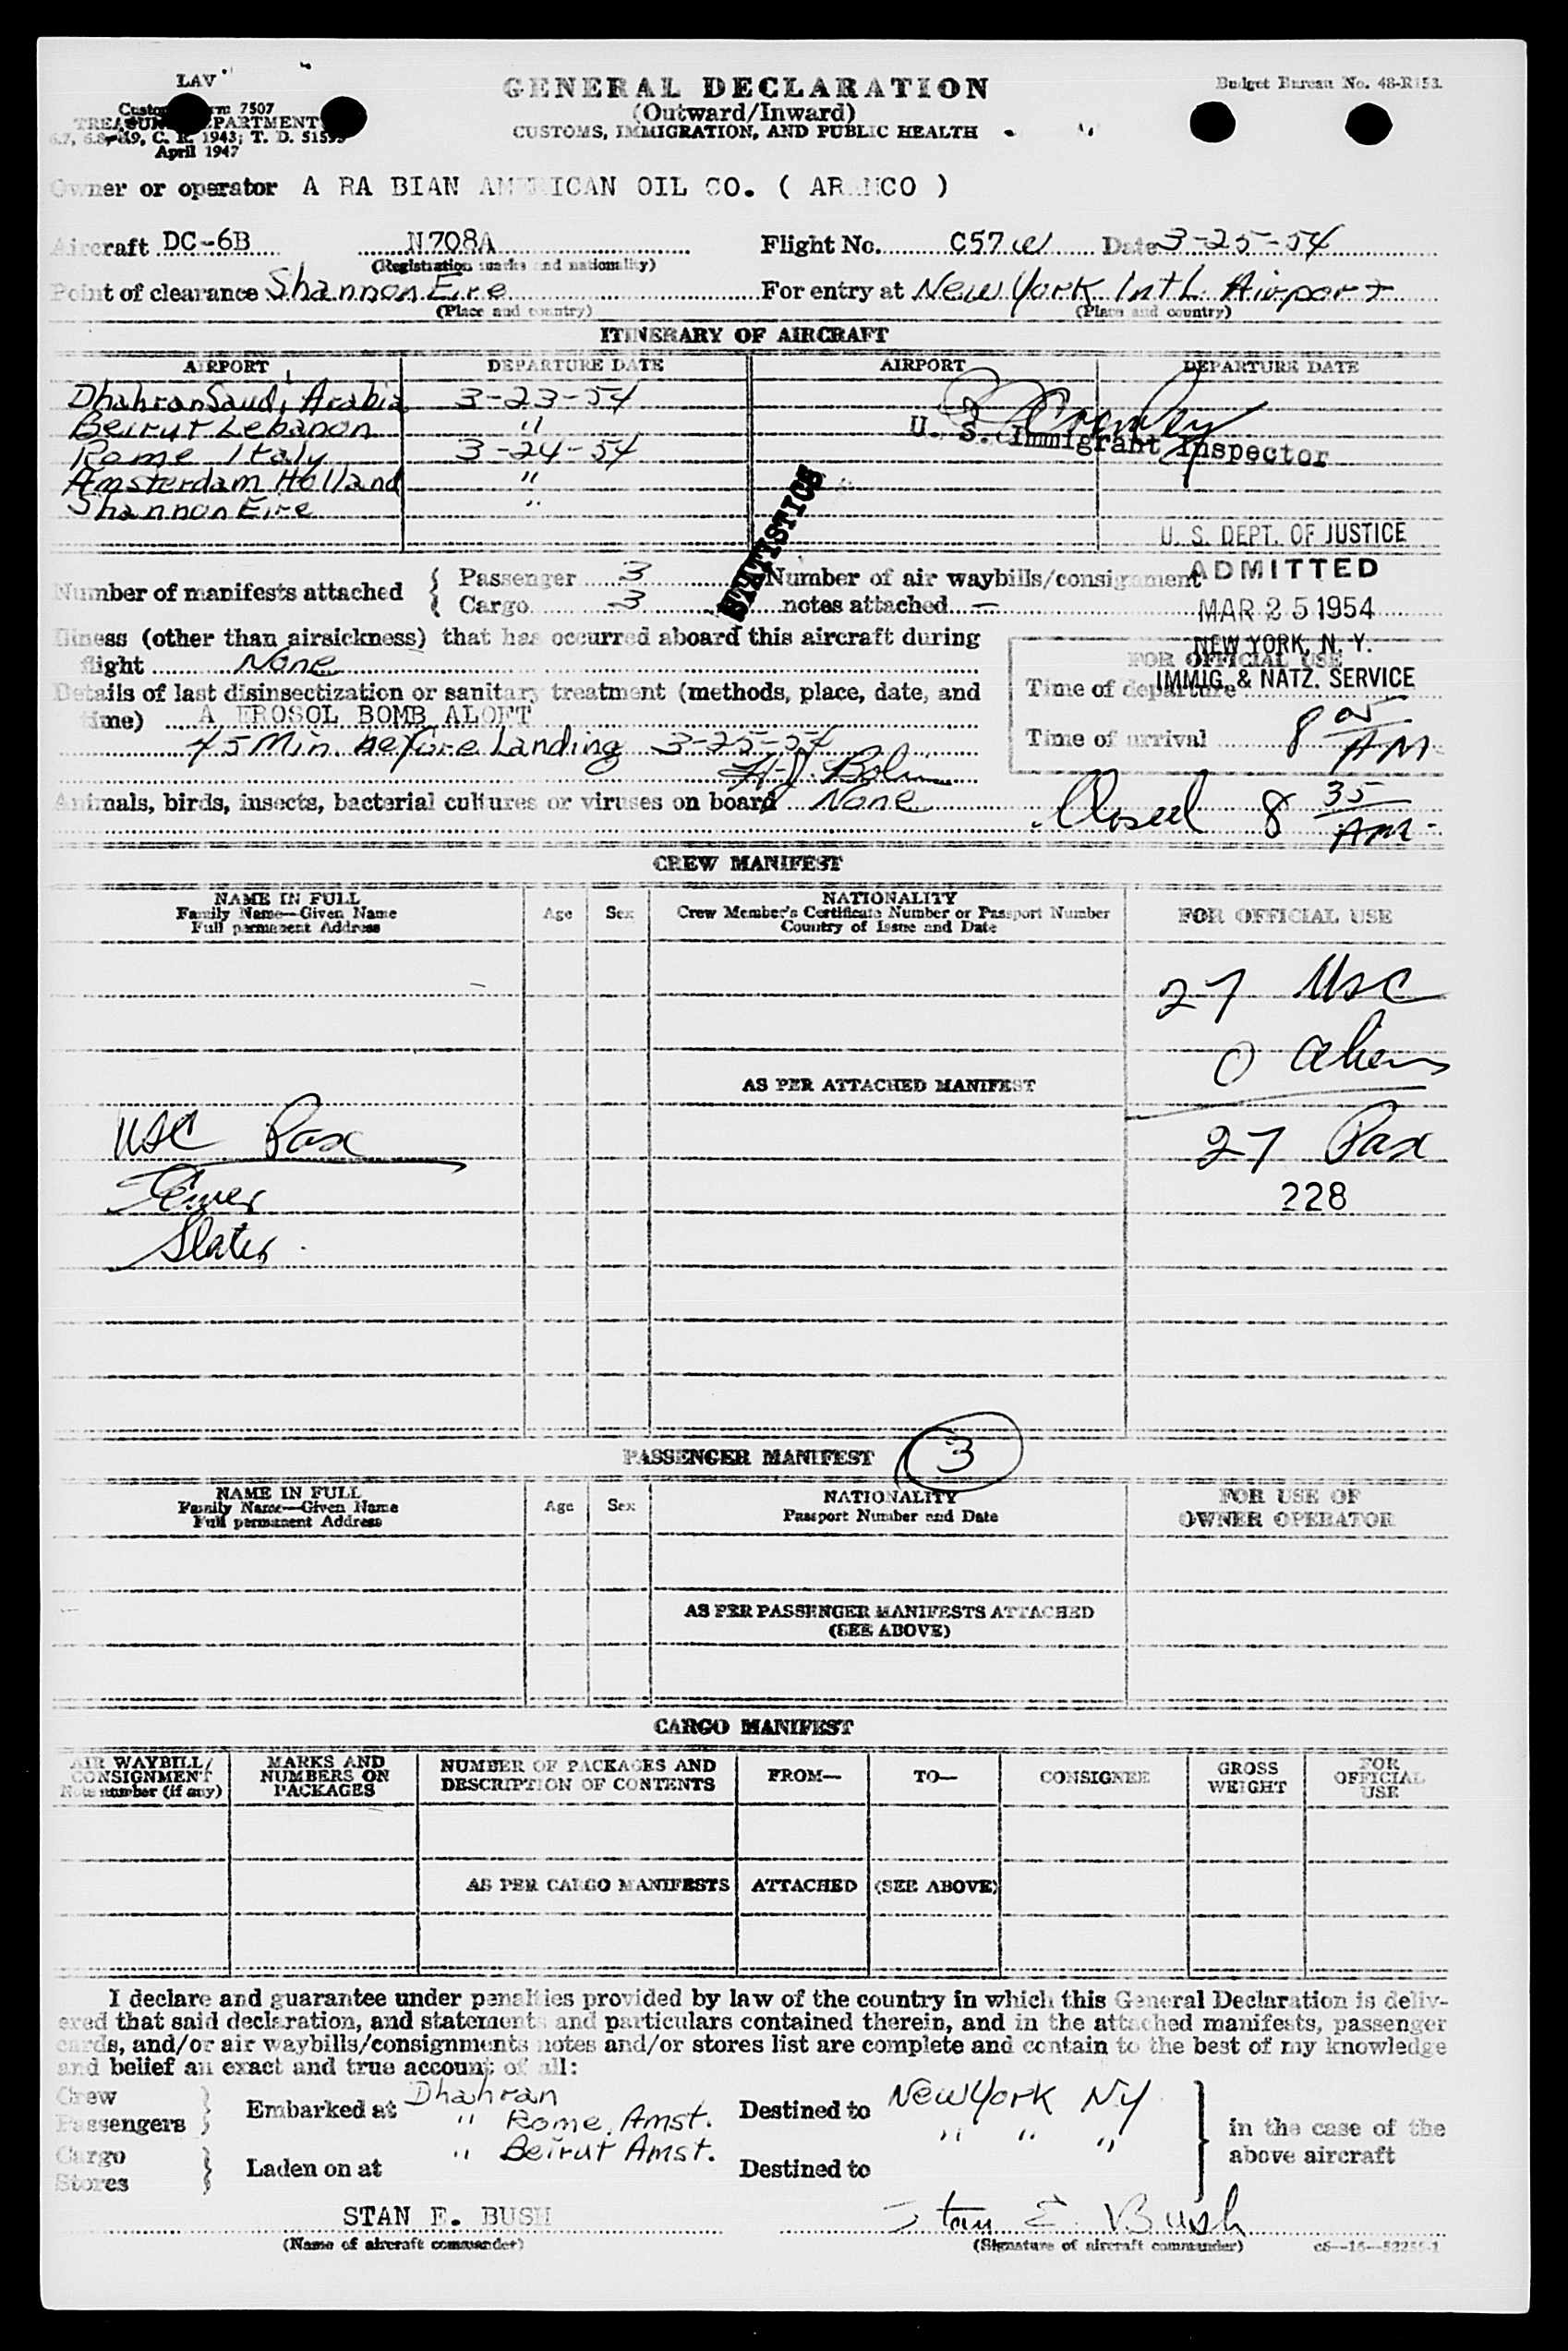 LAV
GENERAL DECLARATION
Budget Bureau No. 48-R153.
Customs Form 7507
(Outward/Inward)
TREASURY DEPARTMENT
CUSTOMS, IMMIGRATION, AND PUBLIC HEALTH
C. R. 1943; T. D. 51595
April 1947
Owner or operator A RA BIAN AMERICAN OIL CO. ( ARAMCO )
Aircraft DC-6B N708A Flight No. C57W Date 3-25-54
(Registration marks and nationality)
Point of clearance Shannon Eire For entry at New York Int'L Airport
(Place and country) (Place and country)
ITINERARY OF AIRCRAFT
AIRPORT DEPARTURE DATE AIRPORT DEPARTURE DATE
Dhahran Saudi Arabia 3-23-54
Beirut Lebanon "
U. S. Immigrant Inspector
Rome Italy 3-24-54
Amsterdam Holland "
Shannon Eire "
STATISTICS
U. S. DEPT. OF JUSTICE
ADMITTED
MAR 25 1954
NEW YORK, N. Y.
IMMIG. & NATZ. SERVICE
Number of manifests attached { Passenger 3 Number of air waybills/consignment
Cargo 3 notes attached —
Illness (other than airsickness) that has occurred aboard this aircraft during
flight None
FOR OFFICIAL USE
Details of last disinsectization or sanitary treatment (methods, place, date, and
Time of departure
time) A EROSOL BOMB ALOFT
45 Min. before Landing 3-25-54
Time of arrival 8 05 AM
Animals, birds, insects, bacterial cultures or viruses on board None
Closed 8 35 AM.
CREW MANIFEST
NAME IN FULL
Family Name—Given Name
Full permanent Address
Age Sex
NATIONALITY
Crew Member's Certificate Number or Passport Number
Country of Issue and Date
FOR OFFICIAL USE
27 USC
0 aliens
AS PER ATTACHED MANIFEST
USC Pax
27 Pax
228
Slater
PASSENGER MANIFEST 3
NAME IN FULL
Family Name—Given Name
Full permanent Address
Age Sex
NATIONALITY
Passport Number and Date
FOR USE OF
OWNER OPERATOR
AS PER PASSENGER MANIFESTS ATTACHED
(SEE ABOVE)
CARGO MANIFEST
AIR WAYBILL/
CONSIGNMENT
Note number (if any)
MARKS AND
NUMBERS ON
PACKAGES
NUMBER OF PACKAGES AND
DESCRIPTION OF CONTENTS
FROM—
TO—
CONSIGNEE
GROSS
WEIGHT
FOR
OFFICIAL
USE
AS PER CARGO MANIFESTS ATTACHED (SEE ABOVE)
I declare and guarantee under penalties provided by law of the country in which this General Declaration is deliv-
ered that said declaration, and statements and particulars contained therein, and in the attached manifests, passenger
cards, and/or air waybills/consignments notes and/or stores list are complete and contain to the best of my knowledge
and belief an exact and true account of all:
Crew
Passengers } Embarked at Dhahran Destined to New York NY
" Rome, Amst. " " "
in the case of the
above aircraft
Cargo
Stores } Laden on at " Beirut Amst. Destined to
STAN E. BUSH Stan E. Bush
(Name of aircraft commander) (Signature of aircraft commander)